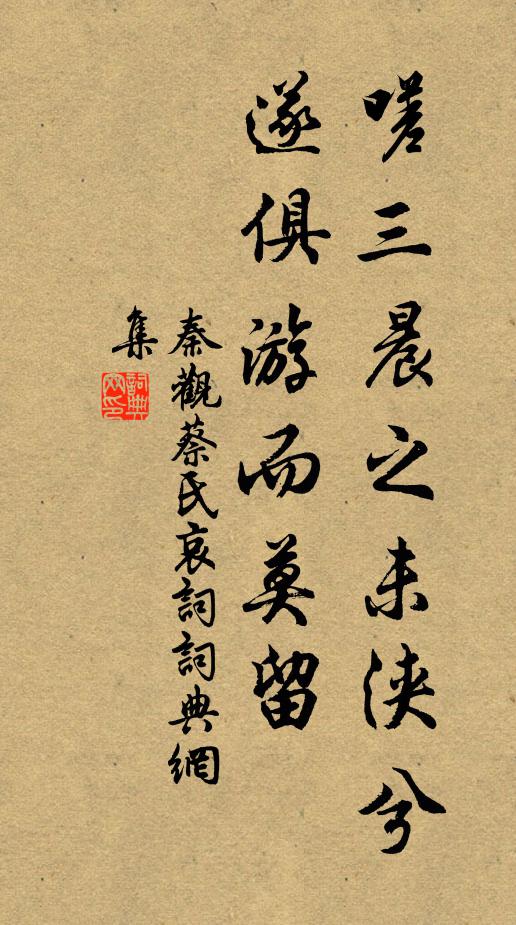 嗟三晨之未浹兮
遂俱游而莫留
秦觀蔡氏哀詞詞典網
集
詞典
网印